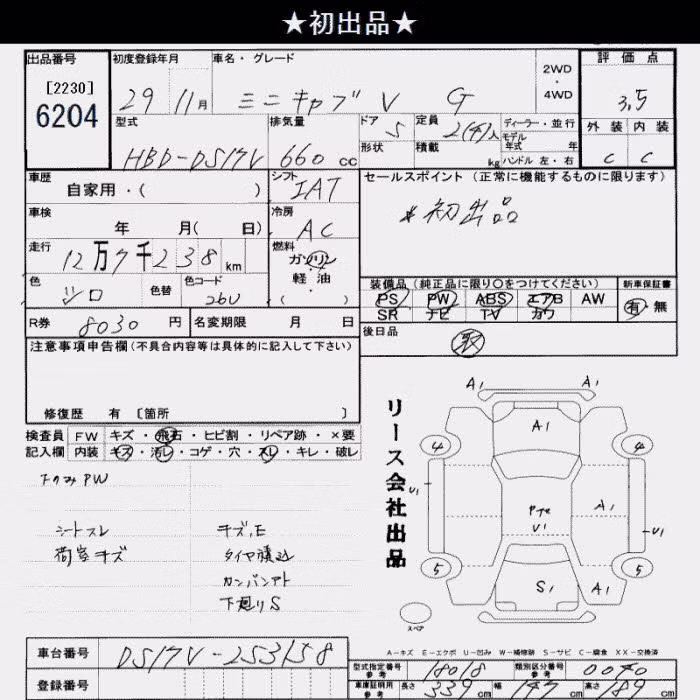 ★初出品★
出品番号 初度登録年月 車名・グレード 2WD・4WD 評価点
[2230]
6204
29 11月 ミニキャブ V G 3.5
型式 排気量 ドア 定員 ディーラー・並行 外装 内装
HBD-DS17V 660cc 5 2(4)人 モデル年式 年 C C
形状 積載 kg ハンドル 左・右
車歴 シフト セールスポイント(正常に機能するものに限ります)
自家用・( ) IAT
*初出品
車検 冷房
年 月( 日) AC
走行 燃料
12万7千238km ガソリン
軽・油
・( )
色 色替 色コード
シロ 26U
装備品(純正品に限り〇をつけてください) 新車保証書
PS PW ABS エアB AW 有・無
SR ナビ TV カワ
R券 8030円 名変期限 月 日
後日品
取
注意事項申告欄(不具合内容等は具体的に記入して下さい)
修復歴 有 〔箇所 〕
検査員記入欄 FW キズ・飛石・ヒビ割・リペア跡・×要
内装 キズ・汚レ・コゲ・穴・スレ・キレ・破レ
リース会社出品
A1 A1
A1
4 4
U1 A1 U1
U1
5 5
S1 A1
スペア
シートスレ キズ,E
荷室キズ タイヤ積込
カンバンアト
下廻りS
A-キズ E-エクボ U-凹み W-補修跡 S-サビ C-腐食 XX-交換済
車台番号 DS17V-253158
登録番号
型式指定番号 参考 18018 類別区分番号 参考 0040
車庫証明用 参考 長さ 339cm 幅 147cm 高さ 189cm